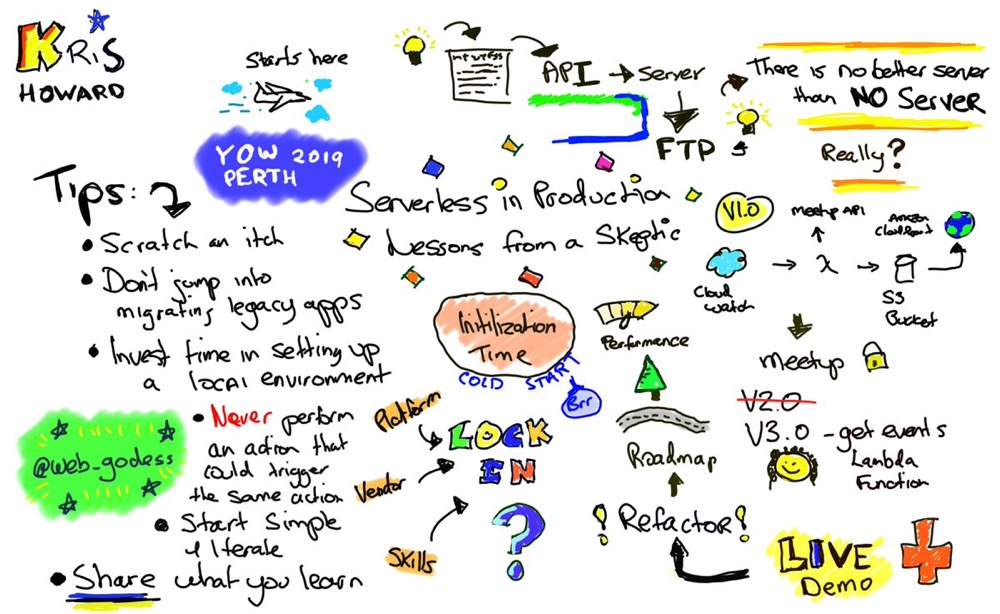 KRiS
HOWARD
Starts here
YOW 2019
PERTH
API → Server
FTP
There is no better server
than NO Server
Really?
Serverless in Production
Lessons from a Skeptic
Tips:
• Scratch an itch
• Don't jump into
migrating legacy apps
• Invest time in setting up
a local environment
• Never perform
an action that
could trigger
the same action
• Start Simple
& Iterate
• Share what you learn
@web_godess
Initilization
Time
COLD START
Brr
Platform
Vendor
Skills
LOCK
IN
?
Performance
Roadmap
! Refactor!
LIVE
Demo
V1.0
Meetup API
Amazon
Cloudfront
Cloud
Watch
→ λ →
S3
Bucket
Meetup
V2.0
V3.0 - get events
Lambda
Function